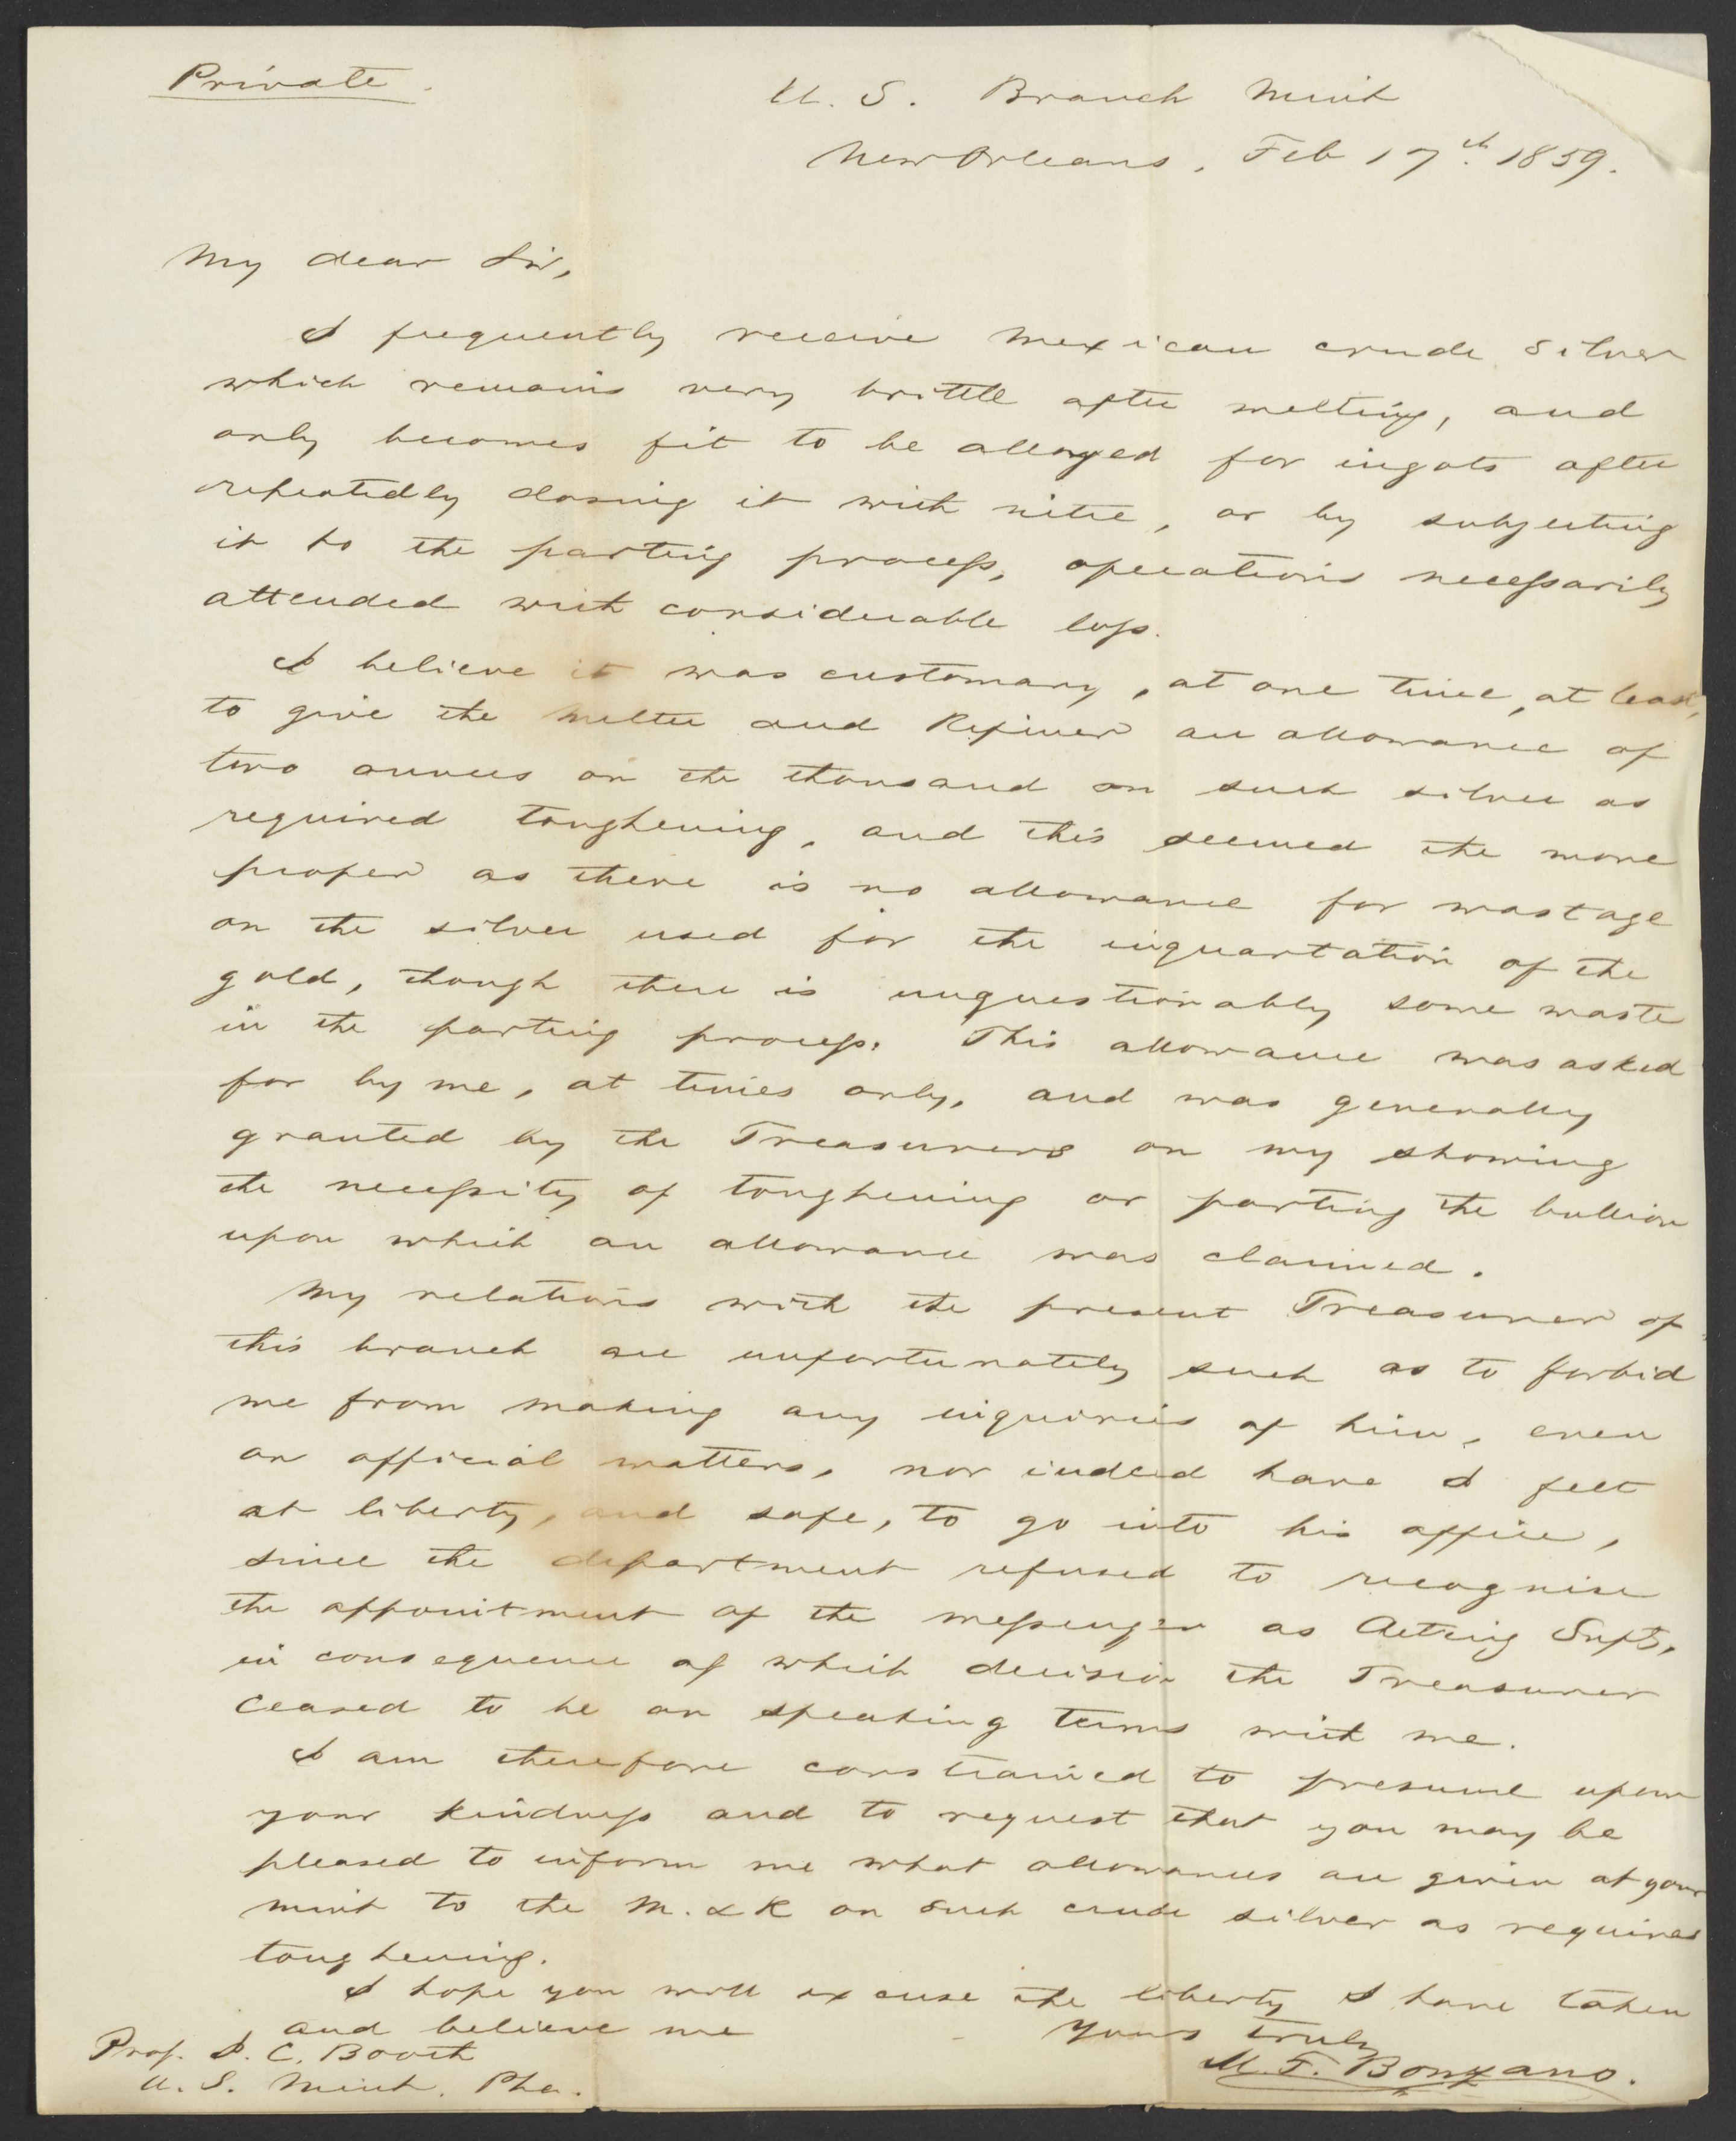 Private.
U. S. Branch Mint
New Orleans, Feb 17th 1859.
My dear Sir,
I frequently receive Mexican crude silver
which remains very brittle after melting, and
only becomes fit to be alloyed for ingots after
repeatedly dosing it with nitre, or by subjecting
it to the parting process, operations necessarily
attended with considerable loss.
I believe it was customary, at one time, at least,
to give the Melter and Refiner an allowance of
two ounces on the thousand on such silver as
required toughening, and this seemed the more
proper as there is no allowance for wastage
on the silver used for the inquartation of the
gold, though there is unquestionably some waste
in the parting process. This allowance was asked
for by me, at times only, and was generally
granted by the Treasurers on my showing
the necessity of toughening or parting the bullion
upon which an allowance was claimed.
My relations with the present Treasurer of
this branch are unfortunately such as to forbid
me from making any inquiries of him, even
on official matters, nor indeed have I felt
at liberty, and safe, to go into his office,
since the department refused to recognise
the appointment of the messenger as Acting Supt.,
in consequence of which decision the Treasurer
ceased to be on speaking terms with me.
I am therefore constrained to presume upon
your kindness and to request that you may be
pleased to inform me what allowances are given at your
mint to the M. & R on such crude silver as requires
toughening.
I hope you will excuse the liberty I have taken
and believe me
Yours truly
M. F. Bonzano.
Prof. J. C. Booth
U. S. Mint. Pha.